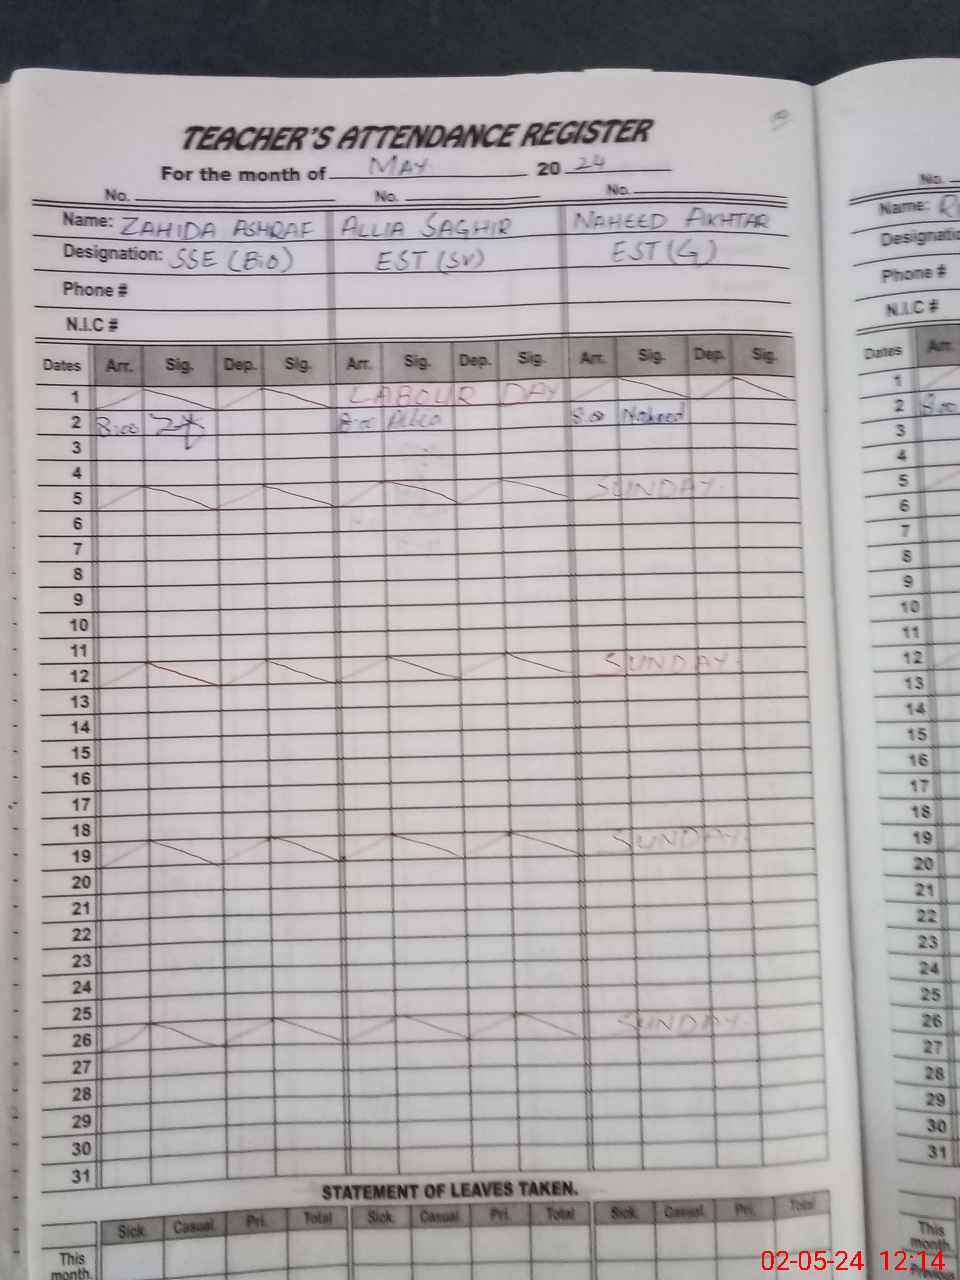 TEACHER'S ATTENDANCE REGISTER
For the month of MAY 2024
No. No. No.
Name: ZAHIDA ASHRAF ALLIA SAGHIR NAHEED AKHTAR
Designation: SSE (BIO) EST (SV) EST (G)
Phone #
N.I.C #
Dates Arr. Sig. Dep. Sig. Arr. Sig. Dep. Sig. Arr. Sig. Dep. Sig.
1 LABOUR DAY
2 8:00 8:00 Allia 8:00 Naheed
3
4
5 SUNDAY.
6
7
8
9
10
11
12 SUNDAY.
13
14
15
16
17
18
19 SUNDAY.
20
21
22
23
24
25
26 SUNDAY.
27
28
29
30
31
STATEMENT OF LEAVES TAKEN.
Sick. Casual. Pri. Total Sick. Casual. Pri. Total Sick. Casual. Pri. Total
This
month.
No.
Name:
Designatio
Phone #
N.I.C #
Dates Arr.
1
2 8:00
3
4
5
6
7
8
9
10
11
12
13
14
15
16
17
18
19
20
21
22
23
24
25
26
27
28
29
30
31
This
month.
Previous
02-05-24 12:14